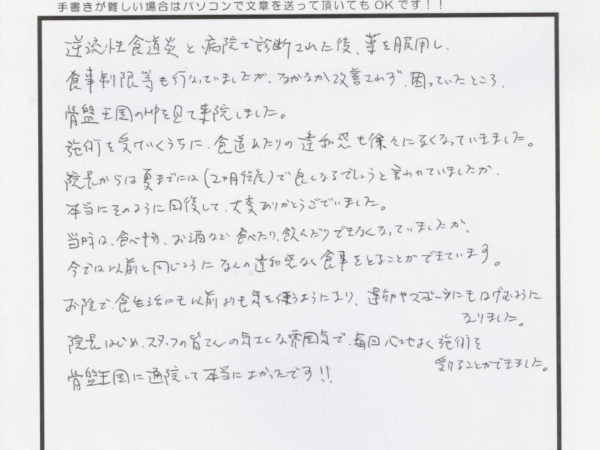 手書きが難しい場合はパソコンで文章を送って頂いてもOKです！！
逆流性食道炎と病院で診断された後、薬を服用し、
食事制限等も行なっていましたが、なかなか改善されず、困っていたところ、
骨盤王国のHPを見て来院しました。
施術を受けていくうちに、食道あたりの違和感も徐々になくなっていきました。
院長からは夏までには（2ヶ月程度）で良くなるでしょうと言われていましたが、
本当にそのように回復して、大変ありがとうございました。
当時は、食べ物、お酒など食べたり、飲んだりできなくなっていましたが、
今では以前と同じようになんの違和感なく食事をとることができています。
お陰で、食生活にも以前よりも気を使うようになり、運動やスポーツにもはげむように
なりました。
院長はじめ、スタッフの皆さんの気さくな雰囲気で、毎回心地よく施術を
受けることができました。
骨盤王国に通院して本当によかったです!!